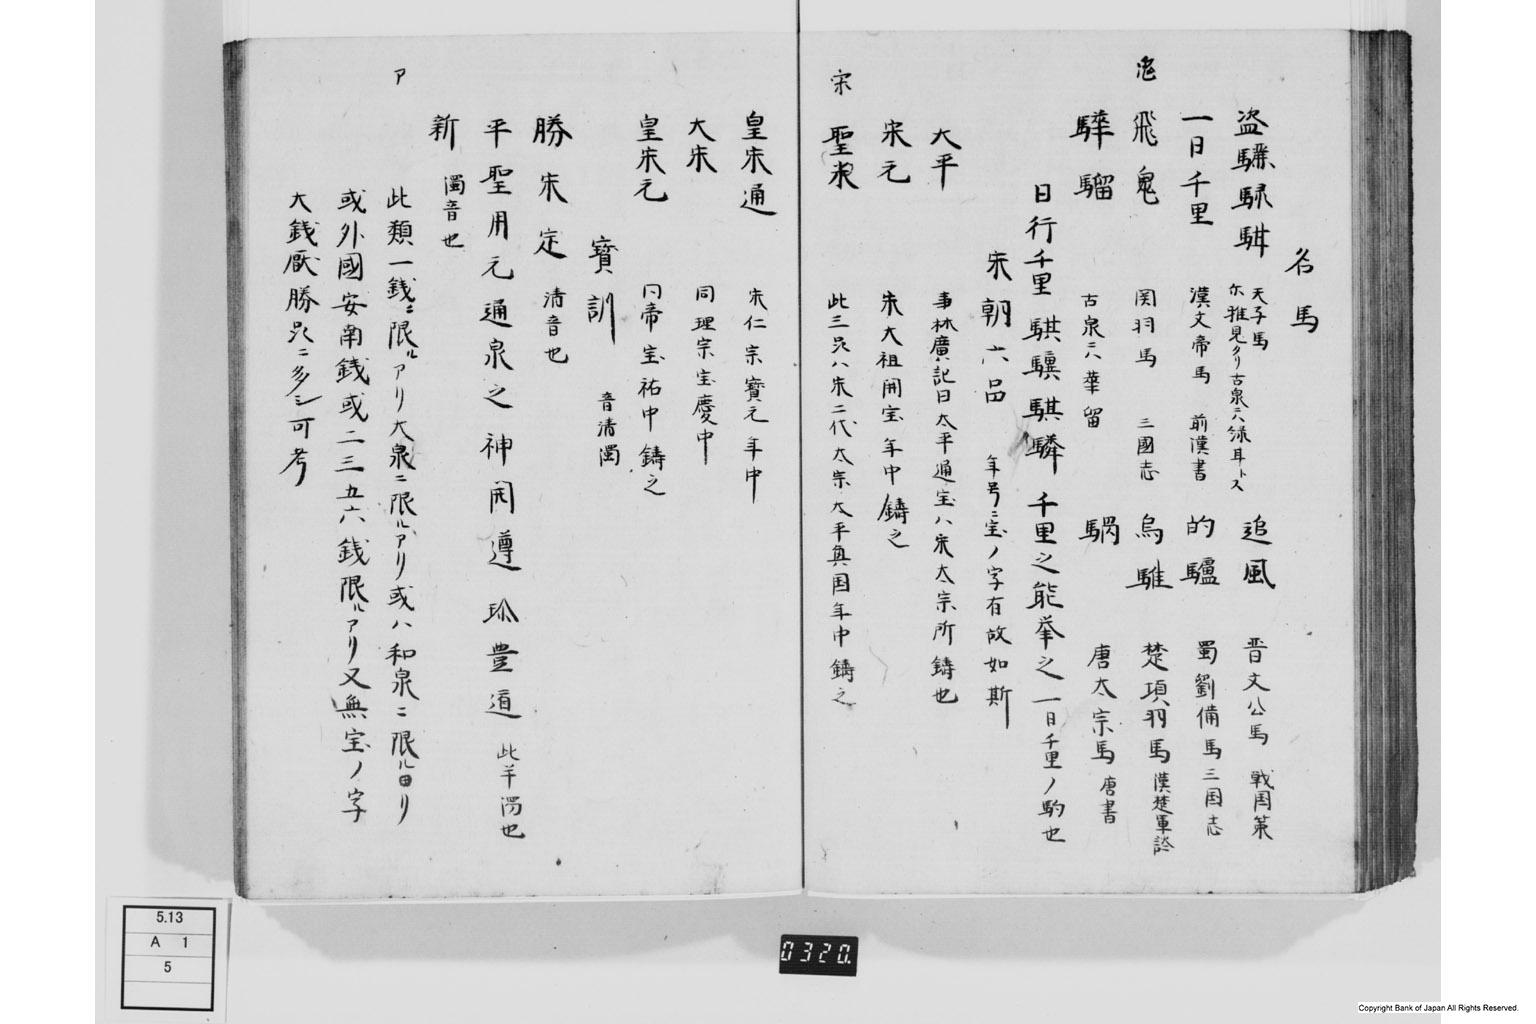 名馬
盗驪騄駬 天子馬 尓雅見タリ古泉ニハ緑耳トス 追風 晋文公馬 戦国策
一日千里 漢文帝馬 前漢書 的驢 蜀劉備馬 三国志
飛鬼 関羽馬 三國志 烏騅 楚項羽馬 漢楚軍談
驊騮 古泉ニハ華留 騧 唐太宗馬 唐書
日行千里 騏驥騏驎 千里之能挙之 一日千里ノ駒也
宋朝六品 年号ニ宝ノ字有故如斯
大平 事林廣記曰太平通宝ハ宋太宗所鋳也
宋元 宋大祖開宝年中鋳之
宋
聖宋 此三品ハ宋二代太宗大平興国年中鋳之
皇宋通 宋仁宗寳元年中
大宋 同理宗宝慶中
皇宋元 同帝宝祐中鋳之
寳訓 音清濁
勝宋定 清音也
平聖用元通泉之神開遵珎豊道 此半濁也
新 濁音也
ア
此類一銭ニ限ルアリ大泉ニ限ルアリ或ハ和泉ニ限ル由リ
或外國安南銭或二三五六銭限ルアリ又無宝ノ字
大銭厭勝品ニ多シ可考
5.13
A 1
5
0320.
Copyright Bank of Japan All Rights Reserved.